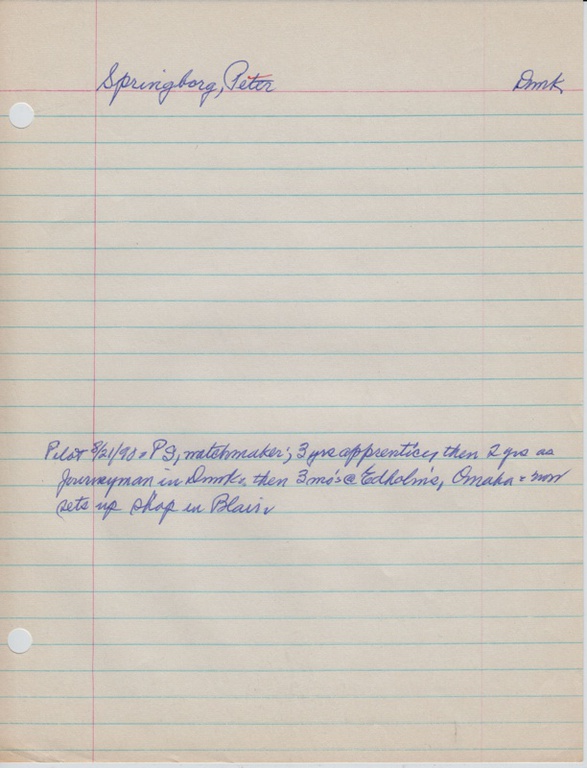 Springborg, Peter Dnmk
Pilot 8/21/90 = PS, watchmaker; 3 yrs apprentice, then 2 yrs as
Journeyman in Dnmk, then 3 mo's @ Edholm's, Omaha = now
sets up shop in Blair.